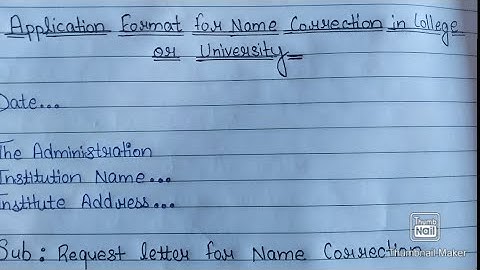 Application Format for Name Correction in College
or University
Date...
The Administration
Institution Name...
Institute Address...
Sub: Request letter for Name Correction
Thumb
Nail
Thumbnail Maker